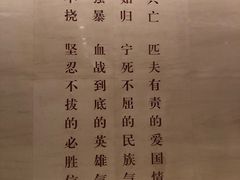 兴亡 匹夫有责的爱国情
如归 宁死不屈的民族气
强暴 血战到底的英雄气
不挠 坚忍不拔的必胜信